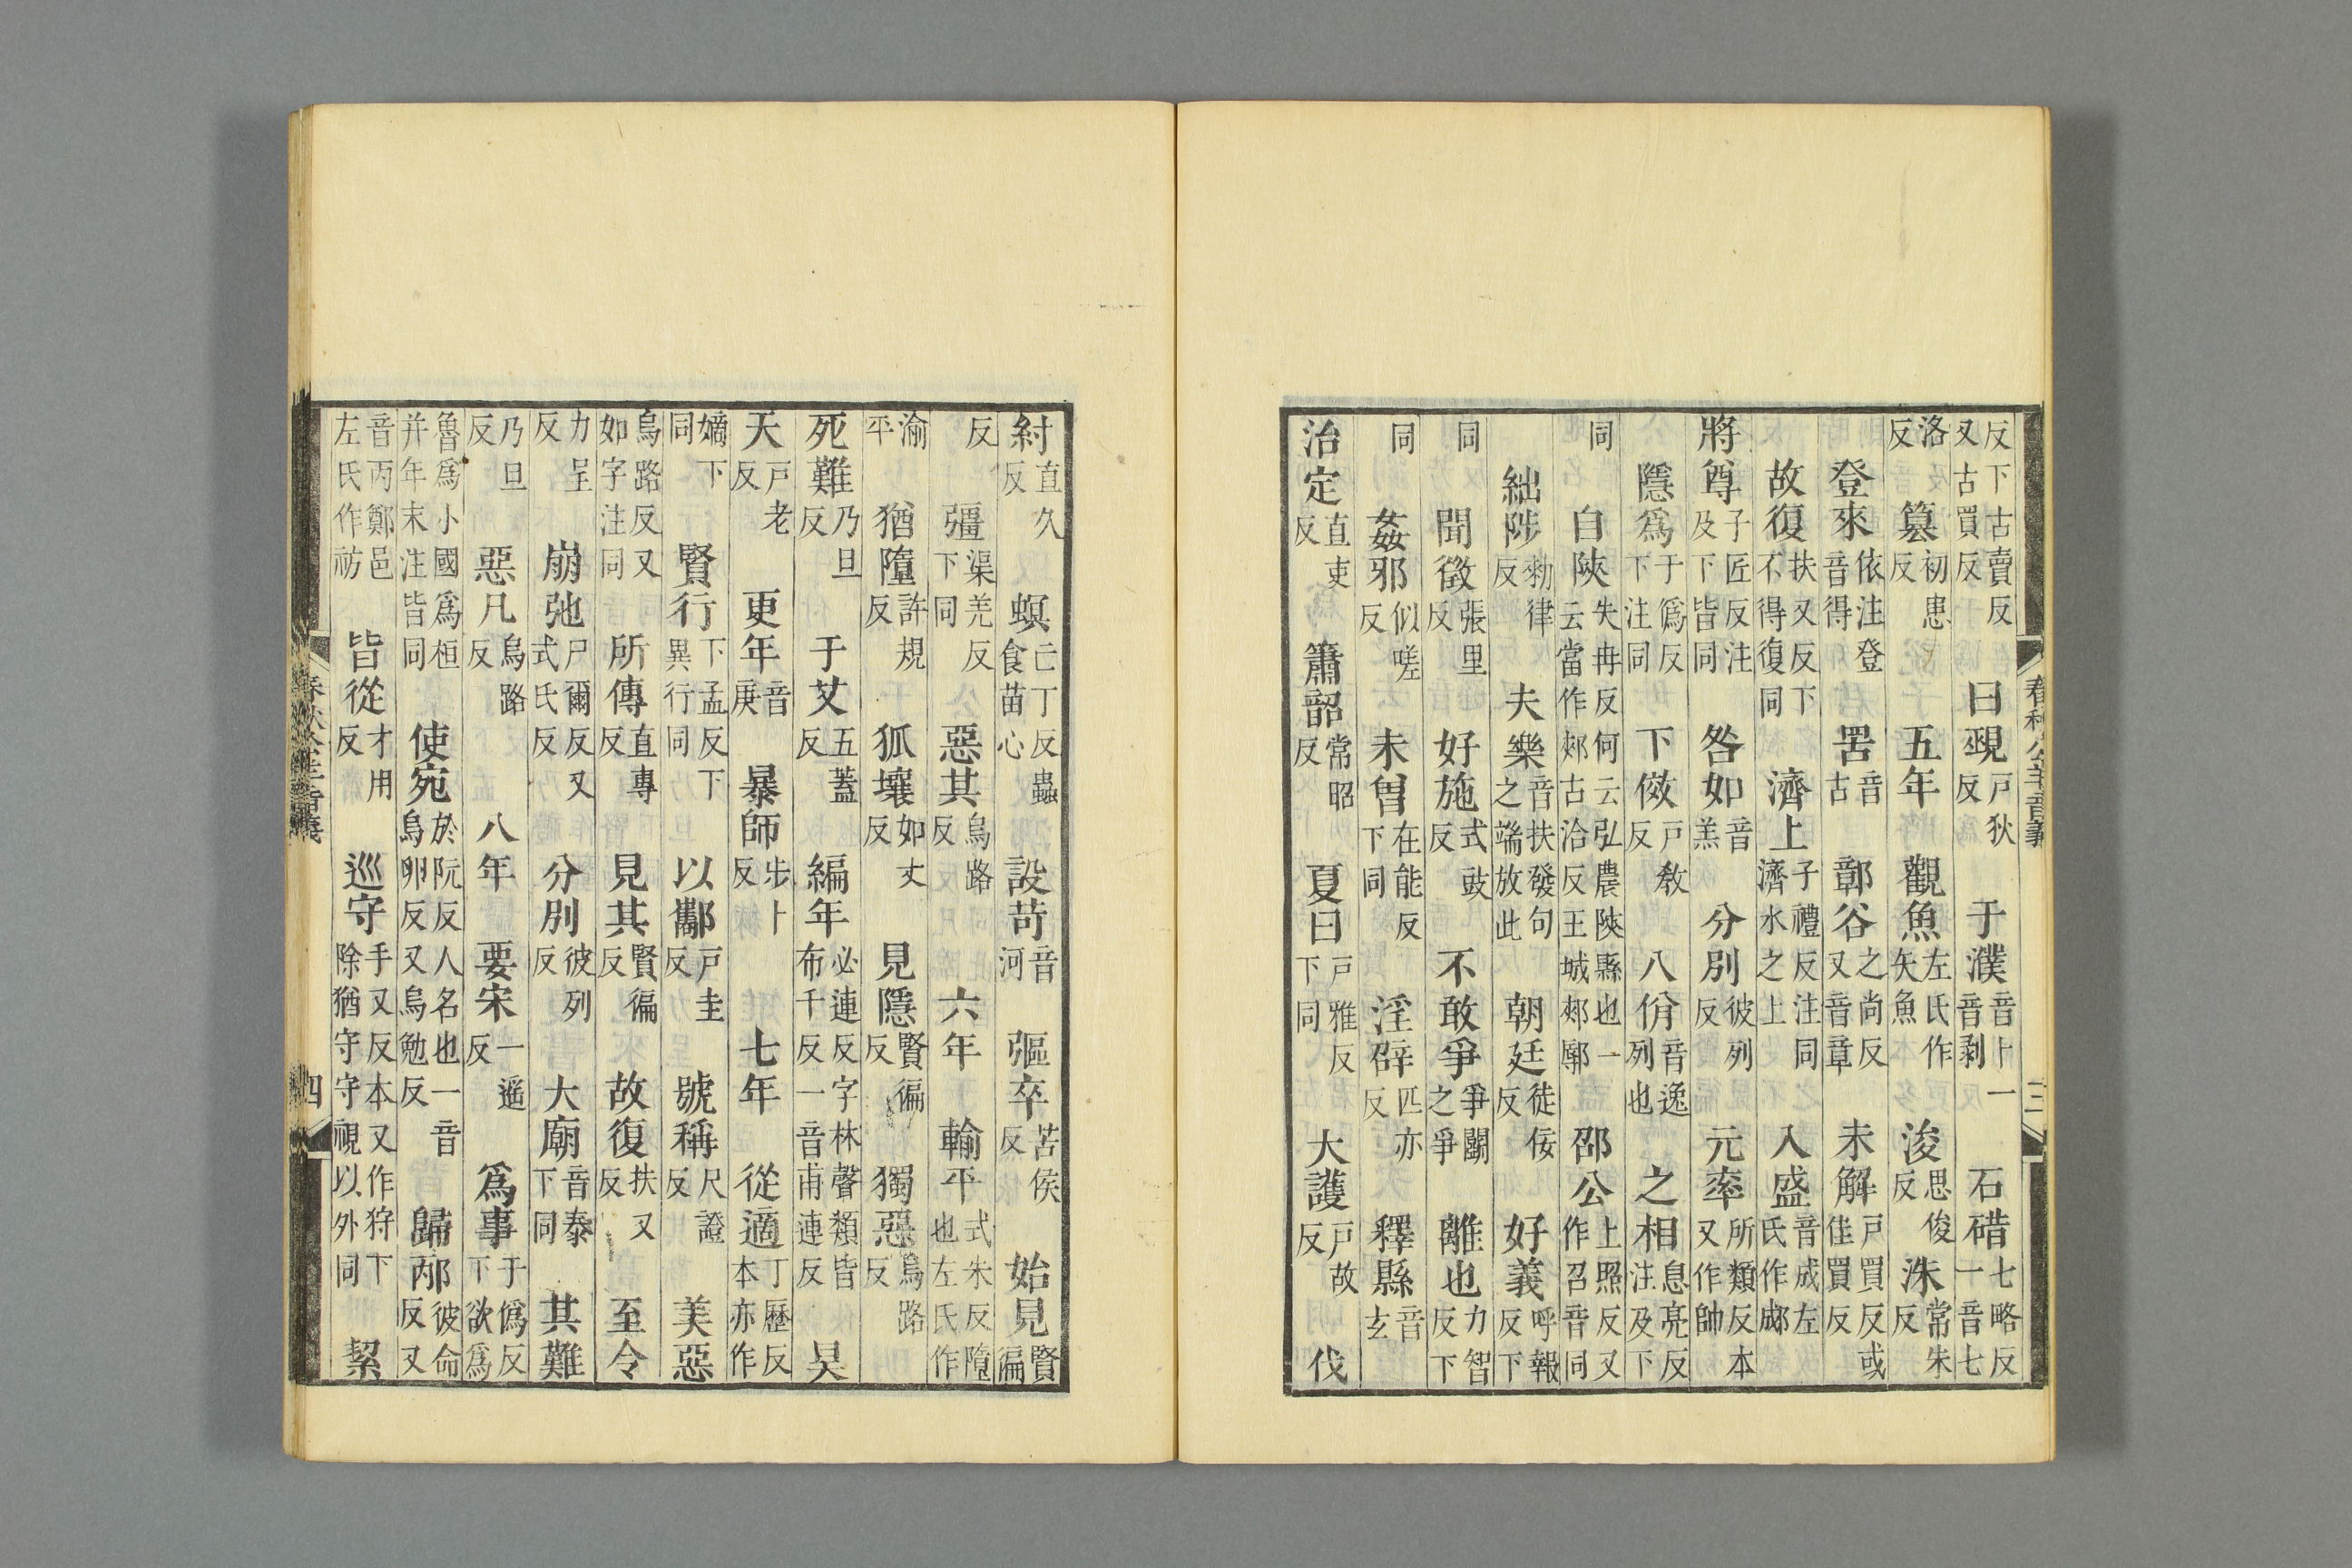 反下古賣反又古買反 曰覡戸狄反 于濮音卜一音剥 石碏七略反一音七
洛反 篡初患反 五年 觀魚左氏作矢魚 浚思俊反 洙常朱反
登來依注登音得 罟音古 鄣谷之尚反又音章 未解戸買反或佳買反
故復扶又反下不得復同 濟上子禮反注同濟水之上 入盛音成左氏作郕
將尊子匠反注及下皆同 咎如音羔 分別彼列反 元率所類反本又作帥
隱爲于僞反下注同 下傚戸教反 八佾音逸列也 之相息亮反注及下
同 自陝失冉反何云弘農陝縣也一云當作郟古洽反王城郟鄏 邵公上照反又作召音同
絀陟勑律反 夫樂音扶發句之端放此 朝廷徒佞反 好義呼報反下
同 聞徵張里反 好施式豉反 不敢爭爭鬭之爭 離也力智反下
同 姦邪似嗟反 未曽在能反下同 淫辟匹亦反 釋縣音玄
治定直吏反 簫韶常昭反 夏曰戸雅反下同 大護戸故反 伐
春秋公羊音義 三
紂直久反 螟亡丁反蟲食苗心 設苛音河 彄卒苦侯反 始見賢徧
反 彊渠羌反下同 惡其烏路反 六年 輸平式朱反隨也左氏作
渝平 猶墮許規反 狐壤如丈反 見隱賢徧反 獨惡烏路反
死難乃旦反 于艾五蓋反 編年必連反字林聲類皆布千反一音甫連反 昊
天戸老反 更年音庚 暴師步卜反 七年 從適丁歷反本亦作
嫡下同 賢行下孟反下異行同 以酅戸圭反 號稱尺證反 美惡
烏路反又如字注同 所傳直專反 見其賢徧反 故復扶又反 至令
力呈反 崩弛尸爾反又式氏反 分別彼列反 大廟音泰下同 其難
乃旦反 惡凡烏路反 八年 要宋一遥反 爲事于僞反下欲爲
魯爲小國爲桓并年末注皆同 使宛於阮反人名也一音烏卵反又烏勉反 歸邴彼命反又
音丙鄭邑左氏作祊 皆從才用反 巡守手又反本又作狩下除猶守守視以外同 絜
春秋公羊音義 四